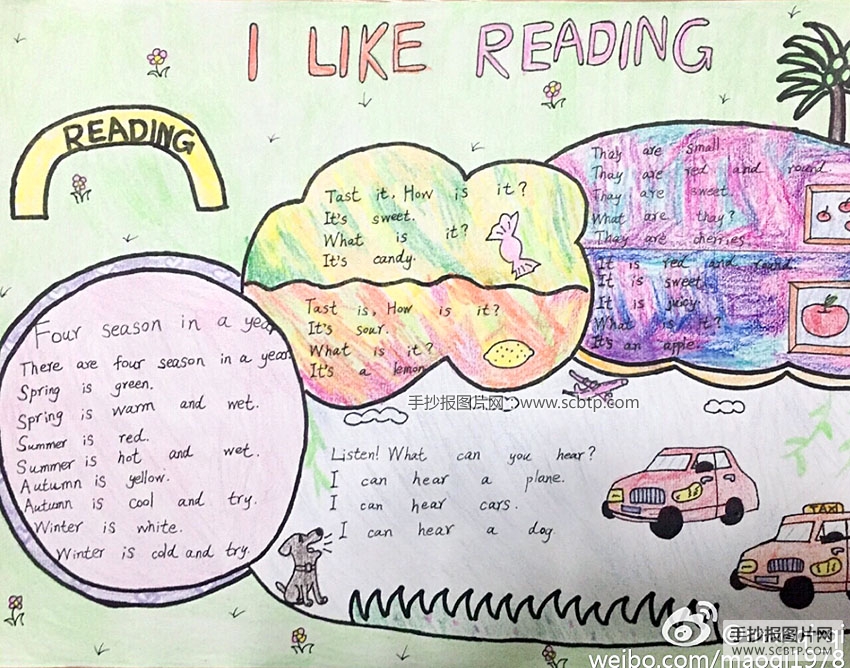 I LIKE READING
READING
Tast it, How is it?
It's sweet.
What is it?
It's candy.
Tast is, How is it?
It's sour.
What is it?
It's a lemon
Thay are small
Thay are red and round.
Thay are sweet
What are thay?
Thay are cherries
It is red and round.
It is sweet.
It is juicy
What is it?
It's an apple.
Four season in a year
There are four season in a year.
Spring is green.
Spring is warm and wet.
Summer is red.
Summer is hot and wet.
Autumn is yellow.
Autumn is cool and try.
Winter is white.
Winter is cold and try.
手抄报图片网:www.scbtp.com
Listen! What can you hear?
I can hear a plane.
I can hear cars.
I can hear a dog.
TAXI
手抄报图片网
WWW.SCBTP.COM
weibo.com/maoqi1978